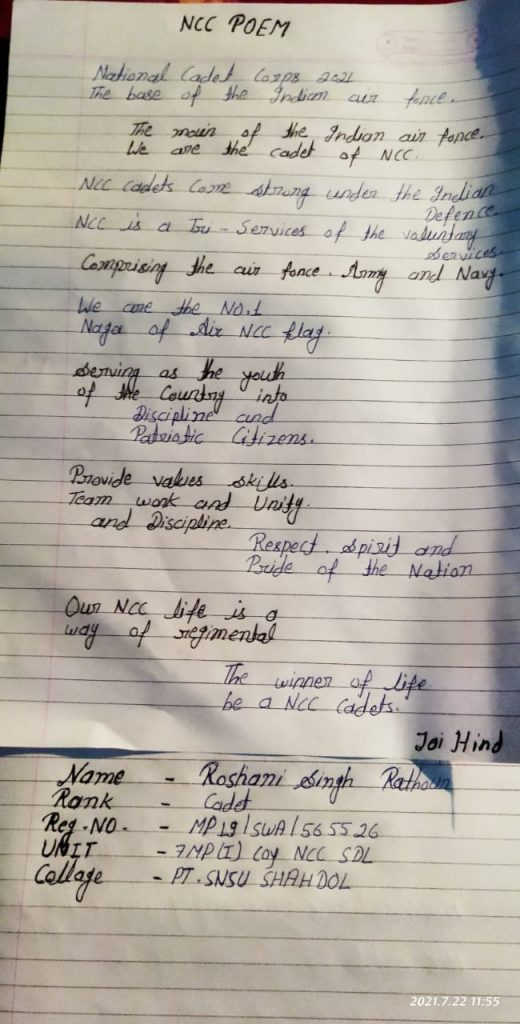 NCC POEM
National Cadet Corps 2021
The base of the Indian air force.
The main of the Indian air force.
We are the cadet of NCC.
NCC cadets Come strong under the Indian
Defence.
NCC is a Tri - Services of the voluntary
Services.
Comprising the air force. Army and Navy.
We are the No.1
Naga of Air NCC flag.
Serving as the youth
of the Country into
Discipline and
Patriotic Citizens.
Provide values skills.
Team work and Unity.
and Discipline.
Respect. Spirit and
Pride of the Nation
Our NCC life is a
way of regimental
The winner of life
be a NCC Cadets.
Jai Hind
Name - Roshani Singh Rathour
Rank - Cadet
Reg.NO. - MP19/SWA/565526
UNIT - 7MP(I) Coy NCC SDL
Collage - PT.SNSU SHAHDOL
2021.7.22 11:55